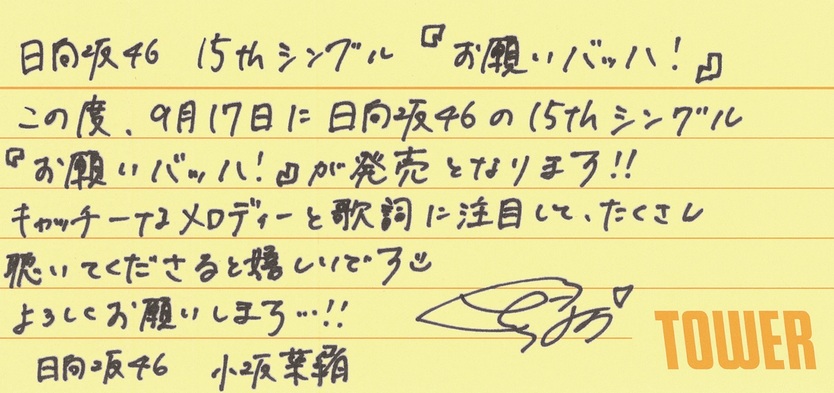 日向坂46 15thシングル 『お願いバッハ!』
この度、9月17日に日向坂46の15thシングル
『お願いバッハ!』が発売となります!!
キャッチーなメロディーと歌詞に注目して、たくさん
聴いてくださると嬉しいです
よろしくお願いします…!!
日向坂46 小坂菜緒
TOWER